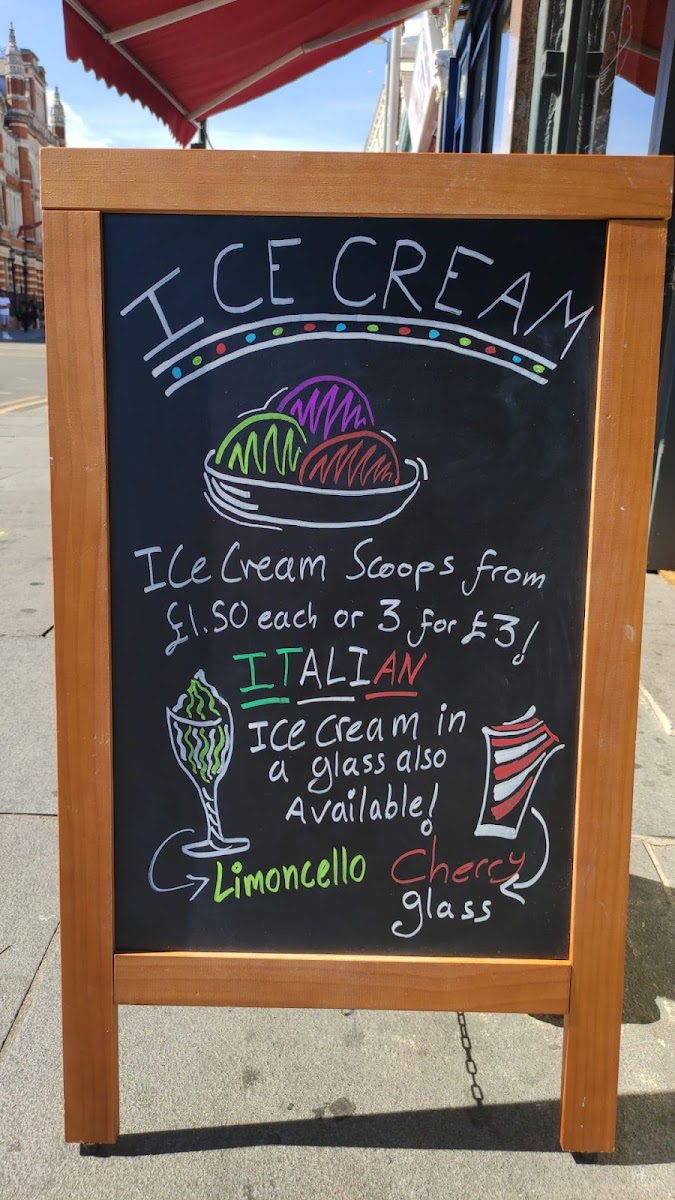 ICE CREAM
Ice Cream Scoops from
£1.50 each or 3 for £3!
ITALIAN
Ice cream in
a glass also
Available!
Limoncello
Cherry
glass